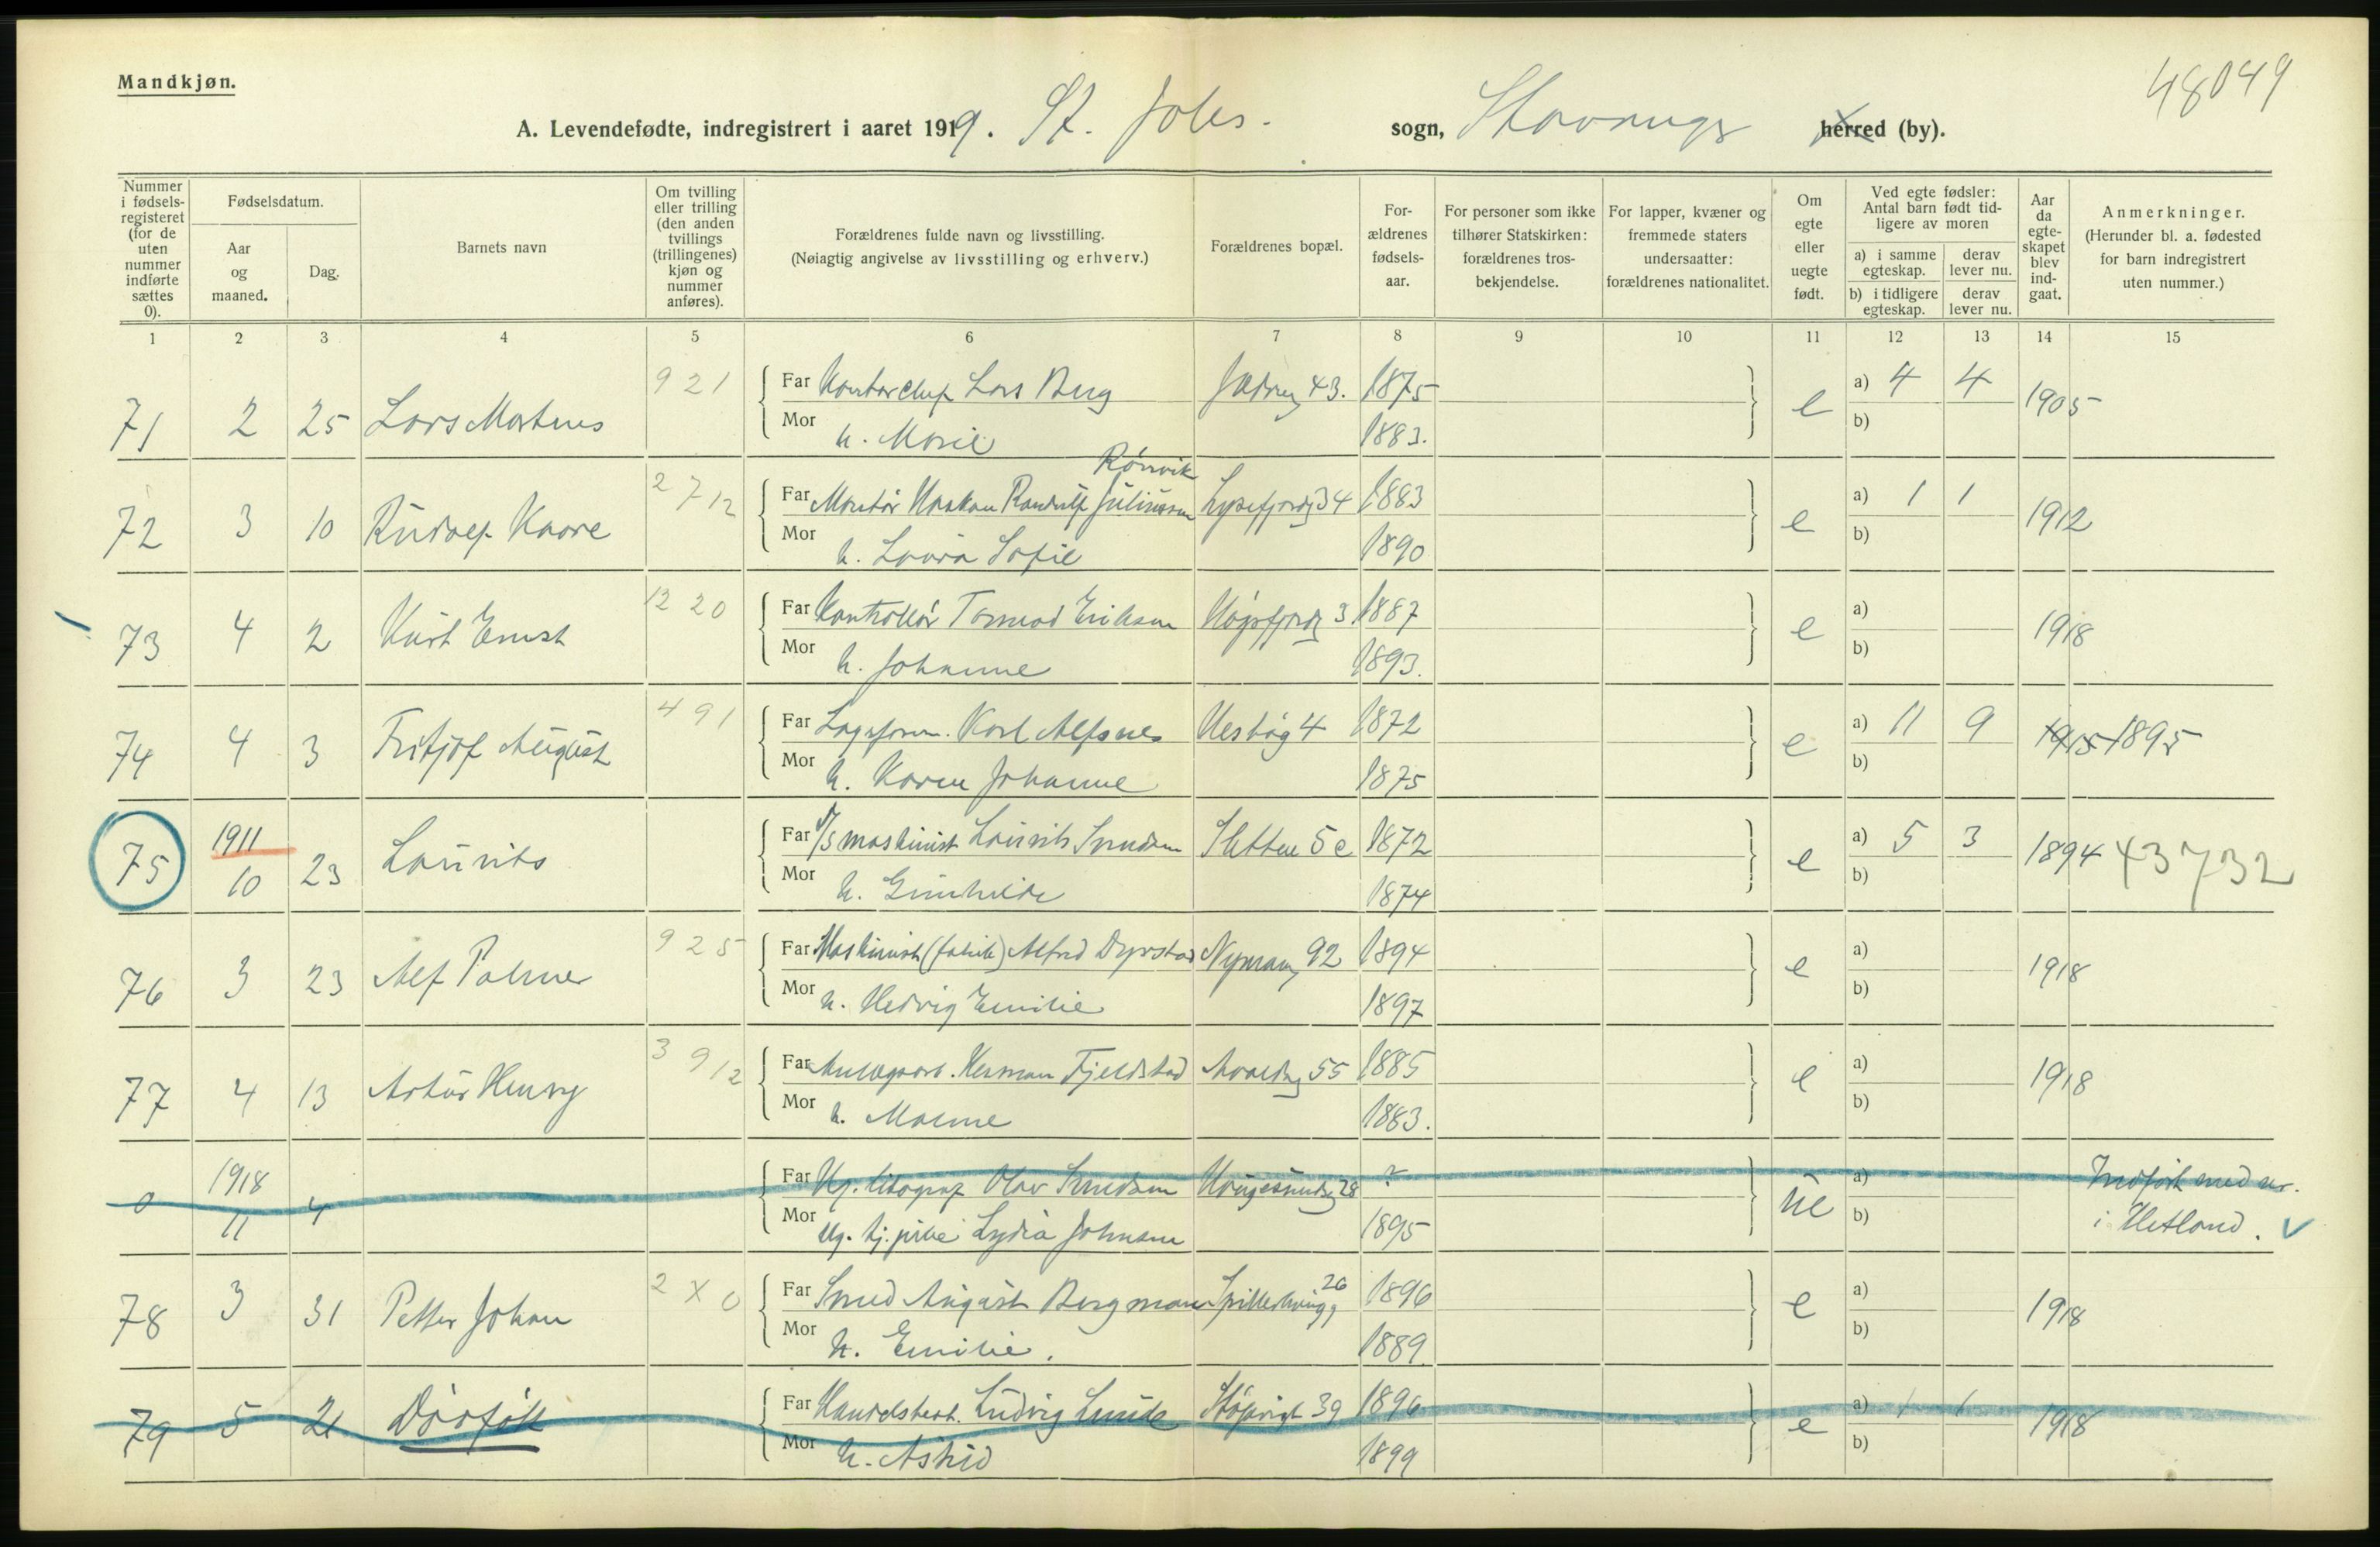 48049
Mandkjøn.
A. Levendefødte, indregistrert i aaret 1919. St. Johs. sogn, Stavanger herred (by).
Nummer i fødselsregisteret (for de uten nummer indførte sættes 0).
Fødselsdatum.
Aar og maaned.
Dag.
Barnets navn
Om tvilling eller trilling (den anden tvillings (trillingenes) kjøn og nummer anføres).
Forældrenes fulde navn og livsstilling.
(Nøiagtig angivelse av livsstilling og erhverv.)
Forældrenes bopæl.
Forældrenes fødselsaar.
For personer som ikke tilhører Statskirken: forældrenes trosbekjendelse.
For lapper, kvæner og fremmede staters undersaatter: forældrenes nationalitet.
Om egte eller uegte født.
Ved egte fødsler: Antal barn født tidligere av moren
a) i samme egteskap. derav lever nu.
b) i tidligere egteskap. derav lever nu.
Aar da egteskapet blev indgaat.
Anmerkninger.
(Herunder bl. a. fødested for barn indregistrert uten nummer.)
1 2 3 4 5 6 7 8 9 10 11 12 13 14 15
71 2 25 Lars Martinus 921 Far Kontorchef Lars Berg 43. 1875 e a) 4 4 1905
Mor h. Marie 1883. b)
Rönvik
72 3 10 Rudolf Kaare 2 7 12 Far Montör Haakon Randulf Juliussen Lysefjordg 34 1883 e a) 1 1 1912
Mor h. Laura Sofie 1890 b)
73 4 2 Kurt Ernst 12 20 Far Kontrollör Tormod Eriksen Högsfjordg 3 1887 e a) 1918
Mor h. Johanne 1893. b)
74 4 3 Fritjof August 491 Far Lagsform. Karl Alfsnes 4 1872 e a) 11 9 1915 1895
Mor h. Karen Johanne 1875 b)
75 1911 10 23 Laurits Far D/S maskinist Laurits Svendsen Sletten 5c 1872 e a) 5 3 1894 43732
Mor h. Gunhilde 1874 b)
76 3 23 Alf Palmer 925 Far Maskinist (fabrik) Alfred Dyrstad Nymansv 92 1894 e a) 1918
Mor h. Hedvig Emilie 1897 b)
77 4 13 Artur Henry 3 9 12 Far Herman Fjeldstad 55 1885 e a) 1918
Mor h. Malene 1883. b)
0 1918 11 4 Far Ug. litograf Olav Svendsen Haugesundsg 28 ? ue a) Indført med nr.
Mor Ug. tj.pike Lydia Johnsen 1895 b) i Hetland.
78 3 31 Petter Johan 2 X 0 Far Smed August Bergman 26 1896 e a) 1918
Mor h. Emilie. 1889 b)
79 5 21 Dödfödt Far Handelsbest. Ludvig Lunde 39 1896 e a) 1 1 1918
Mor h. Astrid 1899 b)